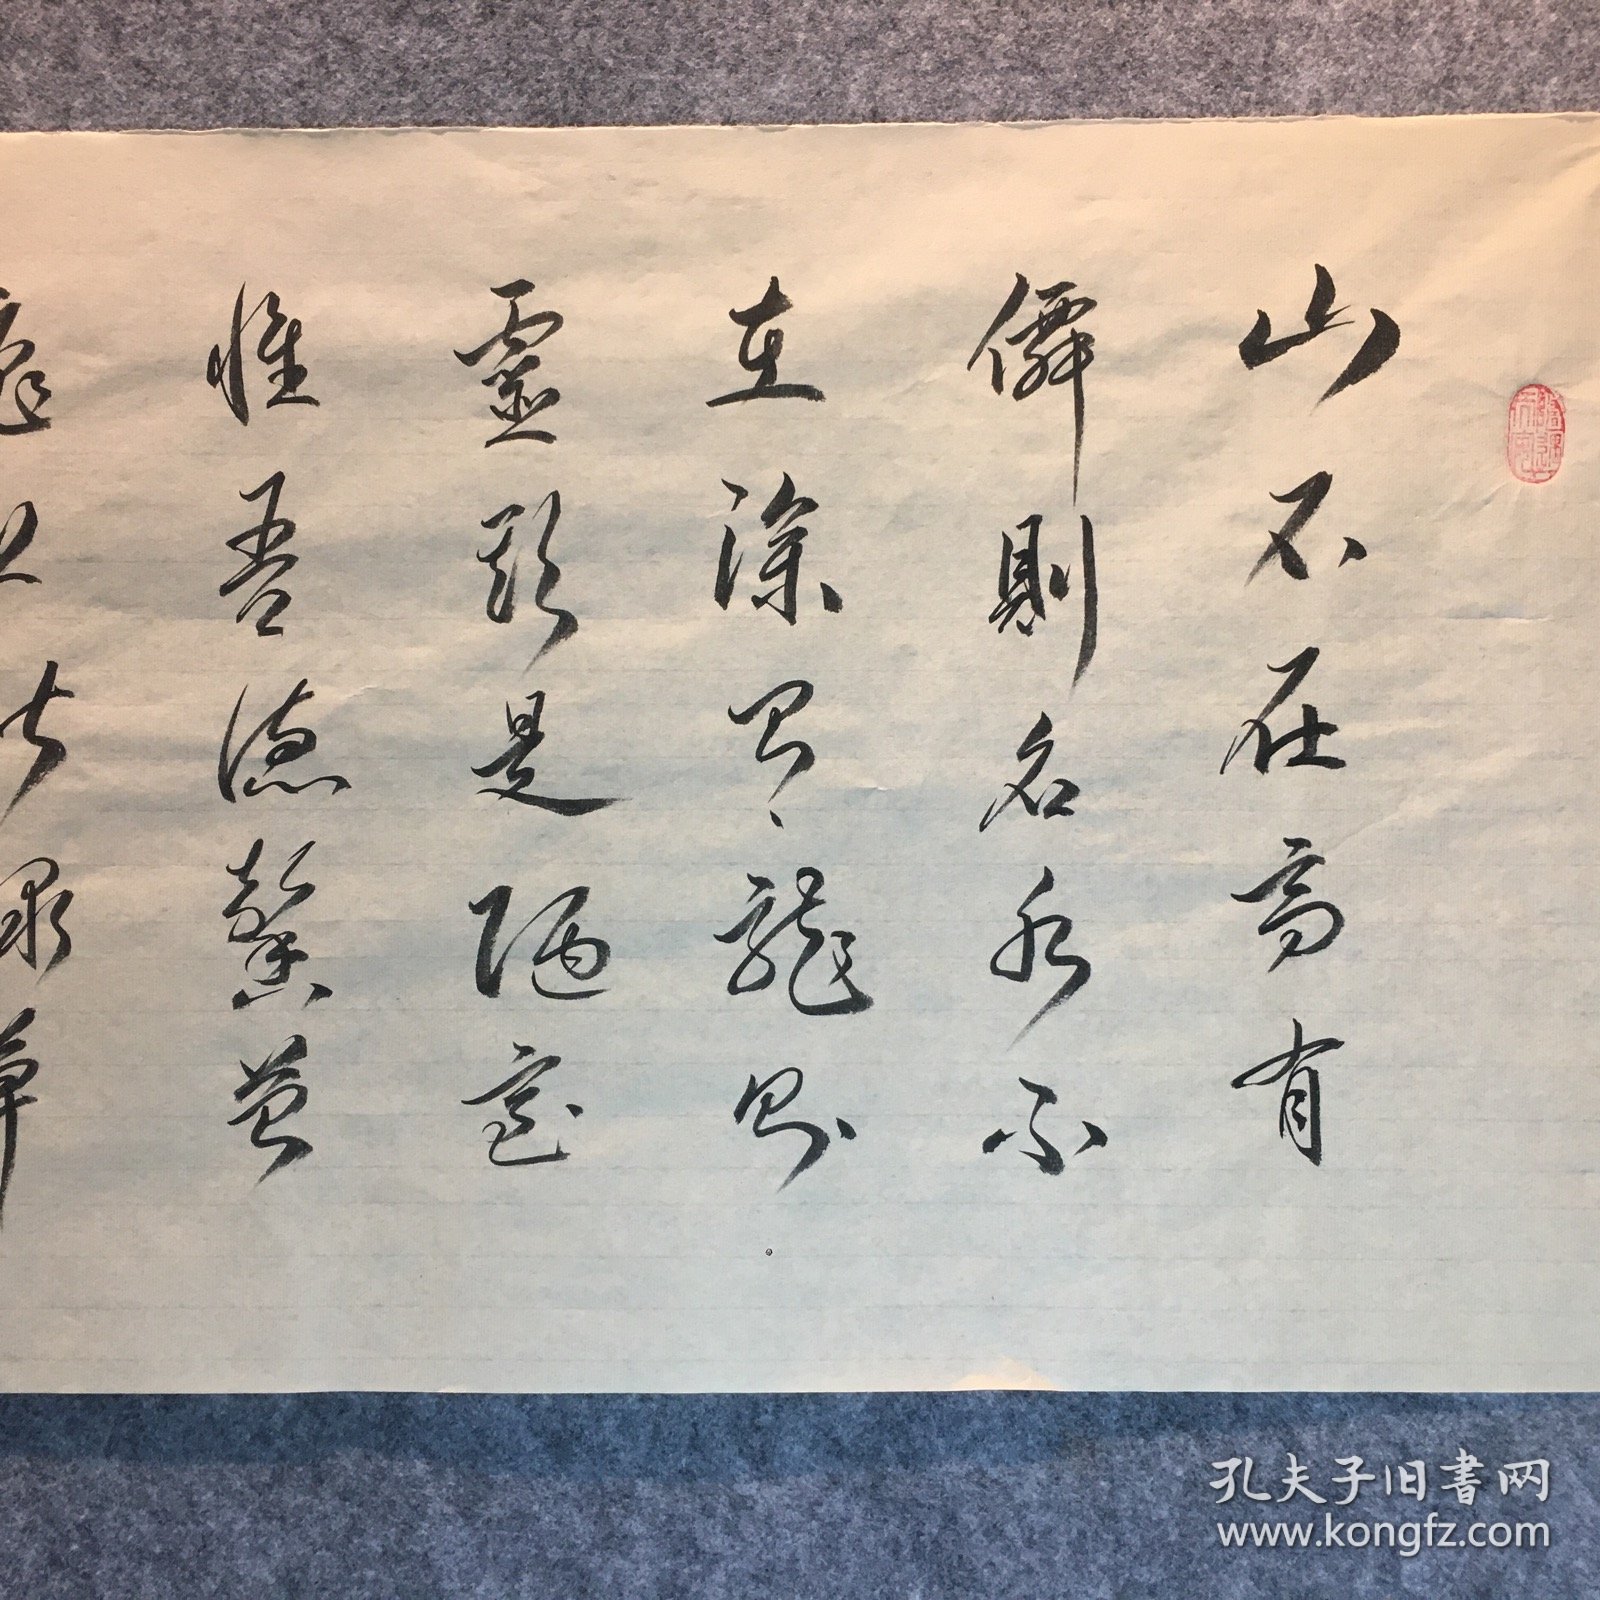 山不在高有
僊則名水不
在深有龍則
靈斯是陋室
惟吾德馨苔
痕上皆綠草
孔夫子旧書网
www.kongfz.com